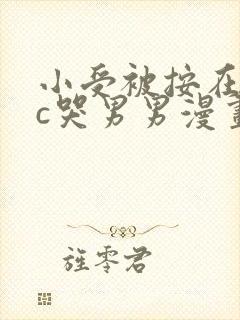 小受被按在
c哭男男漫畫
旌零君